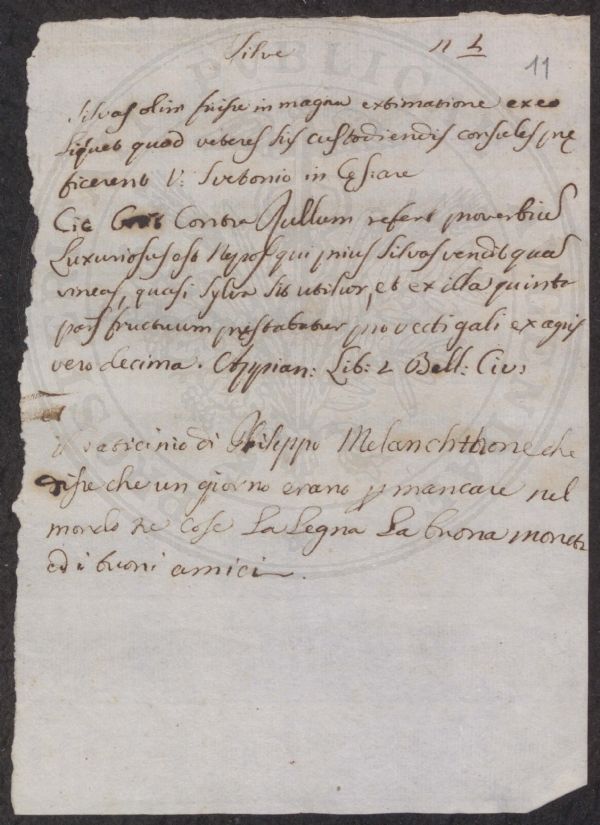 Silve n 4 11
Silvas olim fuisse in magna extimatione ex eo
liquet quod veteres sis custodiendis consules prę
ficerent V: Svetonio in Cęsare
Cic Contra Rullum refert proverbiu
Luxuriosus est Nepos qui prius silvas vendit qua
vineas, quasi sylva sit utilior, et ex illa quinta
pars fructuum pręstabatur pro vectigali ex agris
vero decima. Appian: Lib: 2 Bell: Civ:
il vaticinio di Phileppo Melanchthone che
disse che un giorno erano p mancare nel
mondo tre cose La Legna La buona moneta
ed i buoni amici.